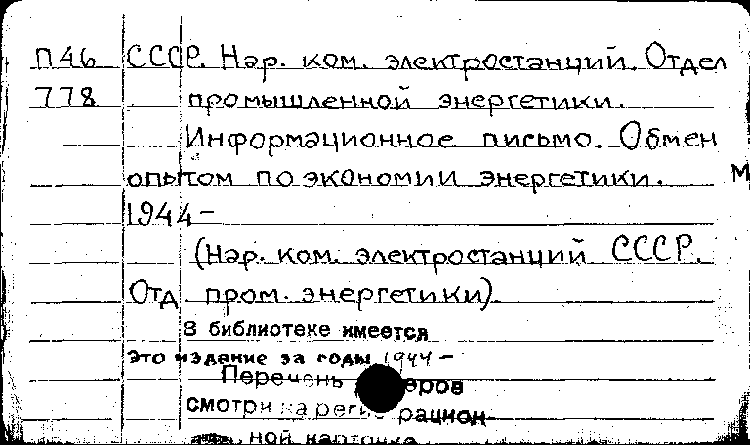 П46 СССР. Нар. ком. электростанций. Отдел
778 промышленной энергетики.
Информационное письмо. Обмен
опытом по экономии энергетики. М
1944-
(Нар. ком. электростанций СССР.
Отд пром. энергетики).
В библиотеке имеется
это издание за годы 1944-
Перечень
смотри на регистрацион-
ной карточке